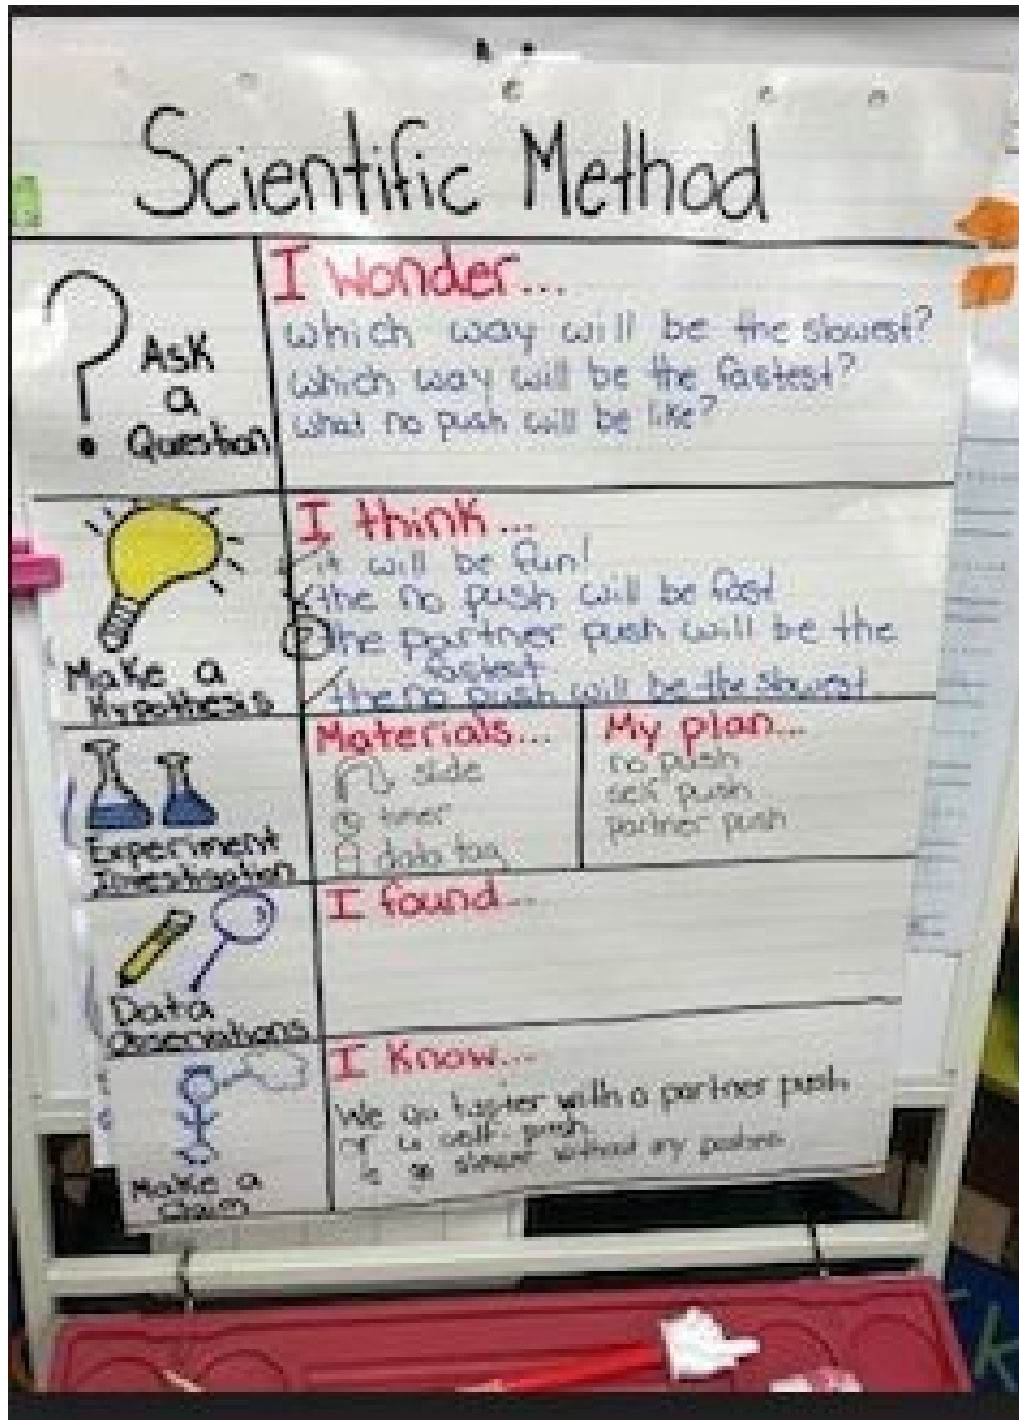 Scientific Method
Ask
a
Question
I wonder...
which way will be the slowest?
which way will be the fastest?
what no push will be like?
Make a
Hypothesis
I think...
it will be fun!
the no push will be fast
the partner push will be the
fastest
the no push will be the slowest
Experiment
Investigation
Materials...
slide
timer
data tag
My plan...
no push
self push
partner push
Data
Observations
I found...
Make a
Claim
I know...
We go faster with a partner push
self-push.
slower without any pushes